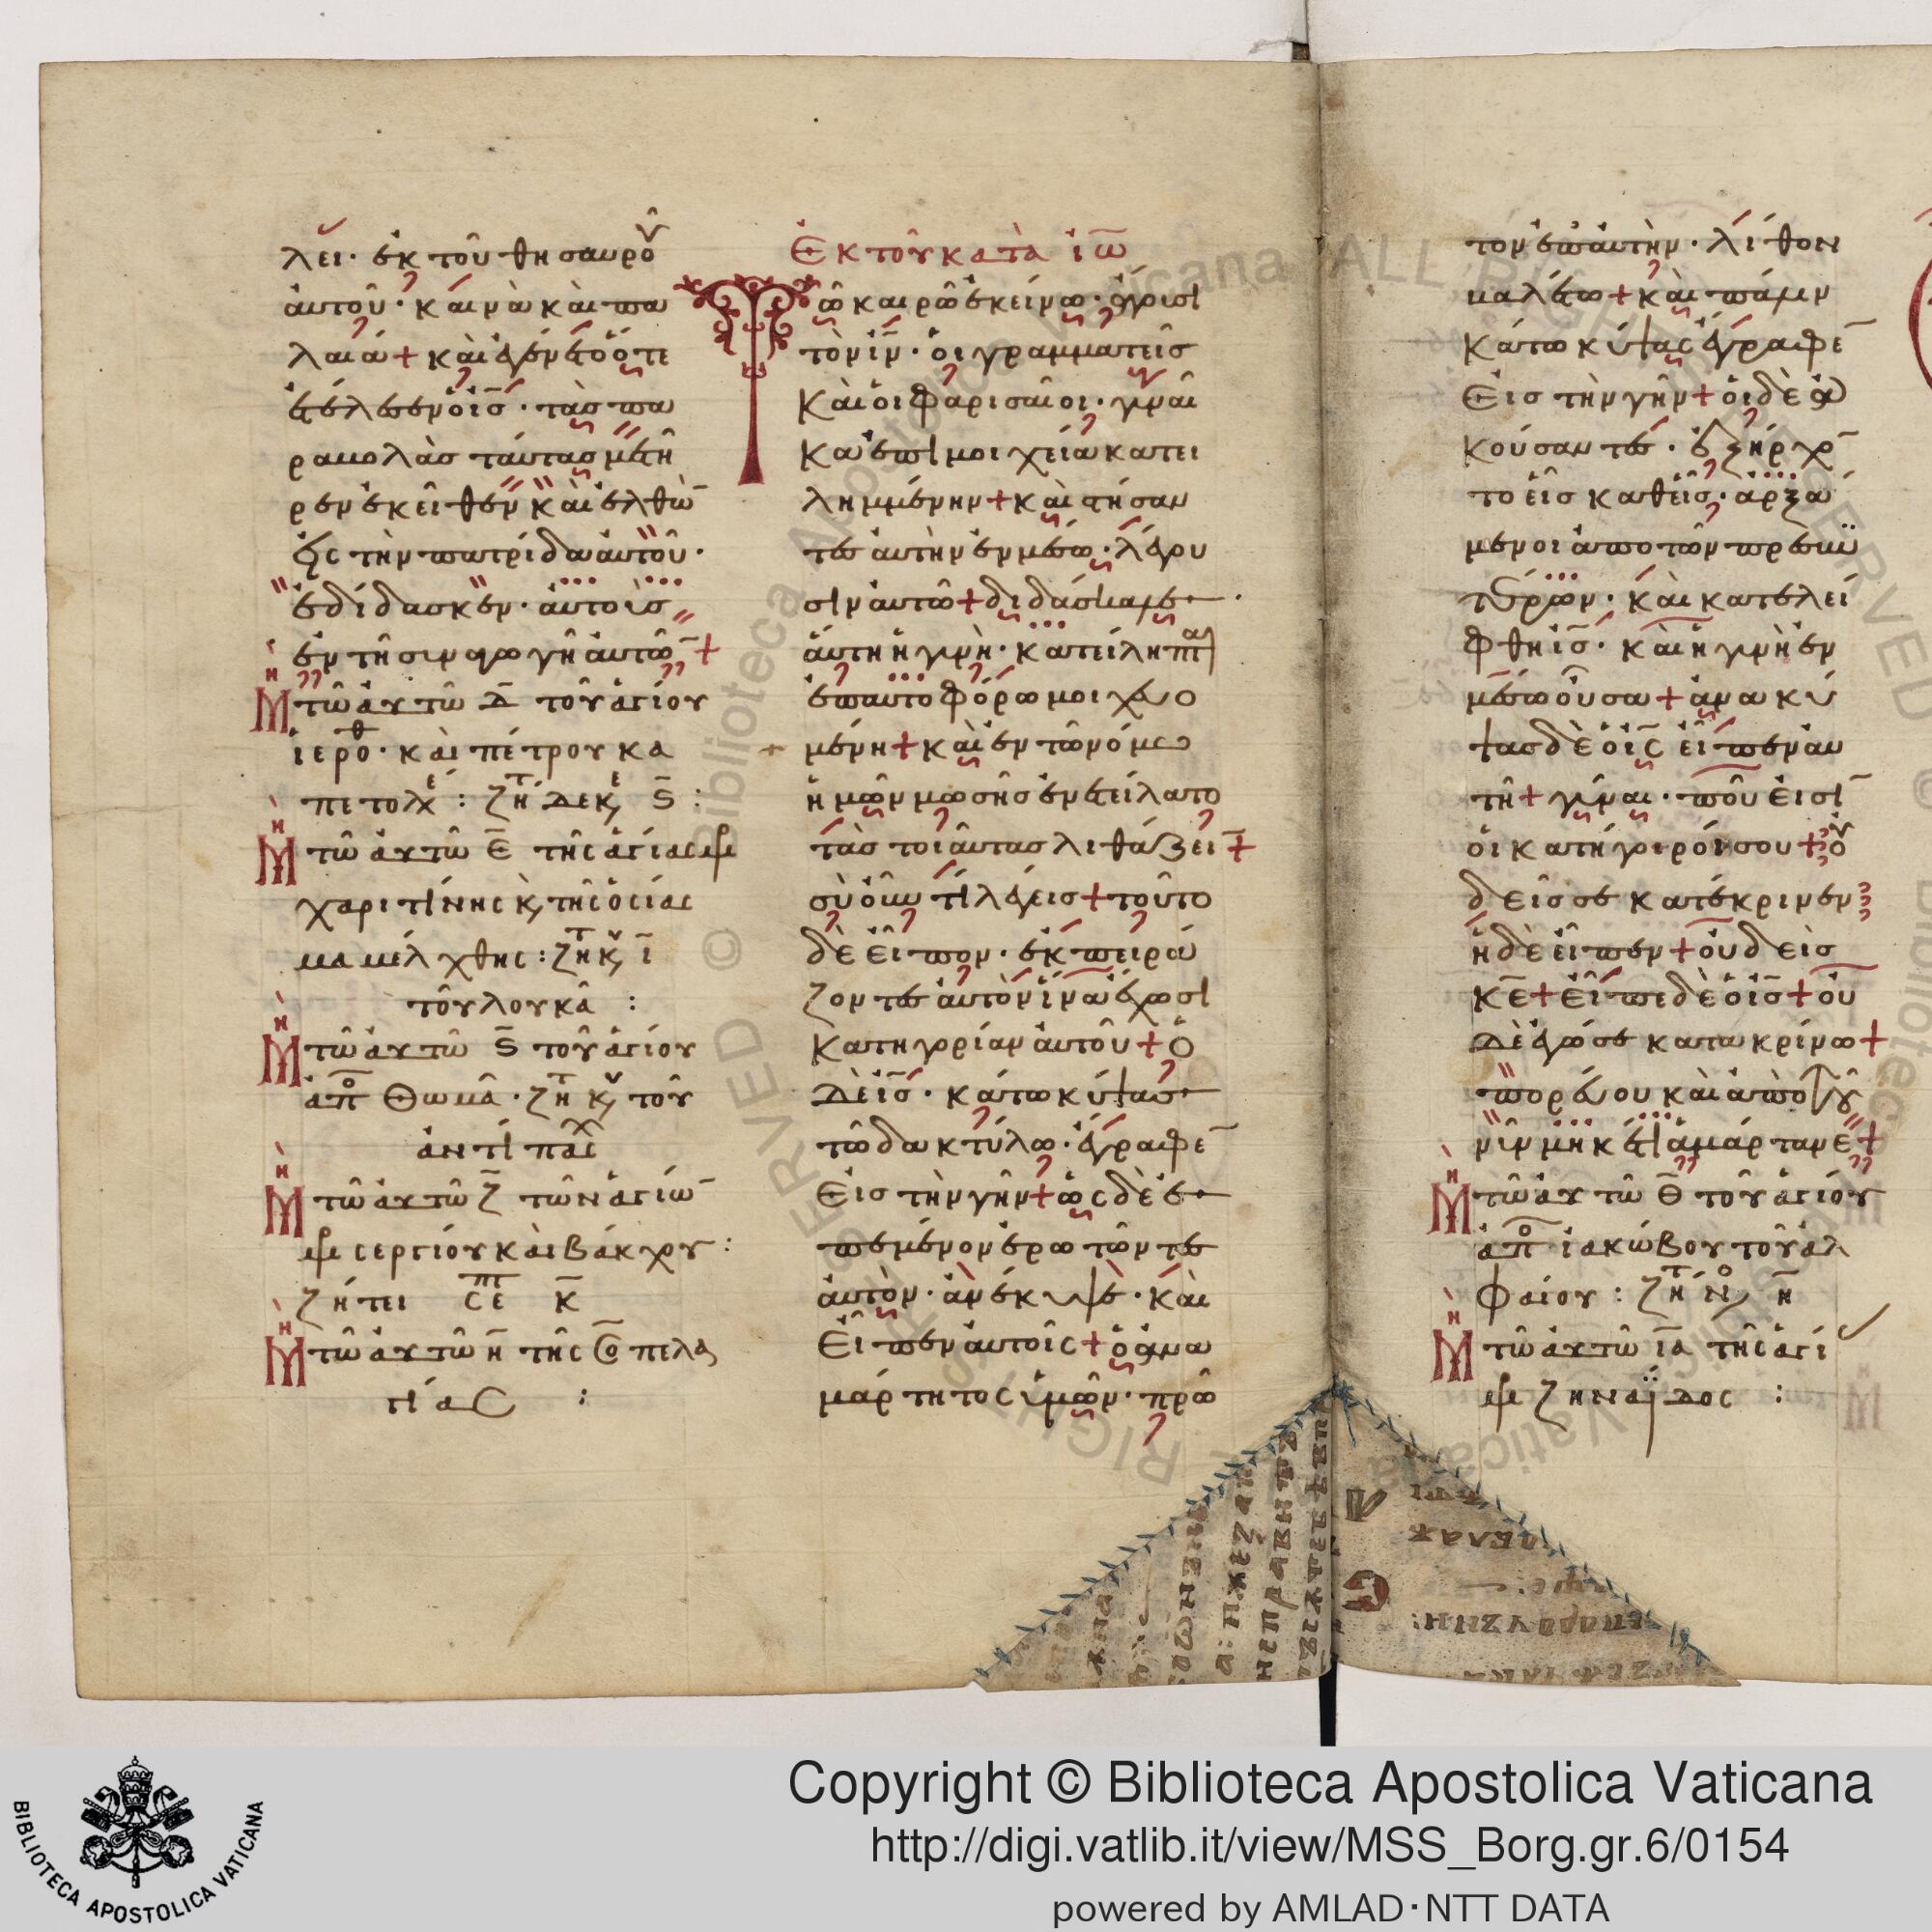 λει· ἐκ τοῦ θησαυροῦ
αὐτοῦ· καινὰ καὶ πα
λαιά + καὶ ἐγένετο ὅτε
ἐτέλεσεν ὁ ις̅· τὰς πα
ραβολὰς ταύτας μετῆ
ρεν ἐκεῖθεν καὶ ἐλθὼ̅
εἰς τὴν πατρίδα αὐτοῦ·
ἐδίδασκεν· αὐτοὺς
ἐν τῇ συναγωγῇ αὐτῶ̅ +
Μη τῶ αὐτῶ Δ̅ τοῦ ἁγίου
ἱεροθ· καὶ πέτρου κα
πετολ
Μη τῶ αὐτῶ Ε̅ τῆς ἁγίας μρ
χαριτίνης κ, τῆς ὁσίας
μαμέλχθης : ζητ κ, ι̅
τοῦ λουκᾶ :
Μη τῶ αὐτῶ ς̅ τοῦ ἁγίου
ἀπο θωμᾶ· ζητ κυ, τοῦ
ἀντίπασχ
Μη τῶ αὐτῶ ζ̅ τῶν ἁγίω̅
μρ σεργίου καὶ βάκχου :
ζήτει σε̅π κ̅
Μη τῶ αὐτῶ η̅ τῆς ὁσ πελα
γίας :
Ἐκ τοῦ κατὰ ἰω̅
Τῶ καιρῶ ἐκείνω· ἄγουσι
τὸν ιν̅· οἱ γραμματεῖς
καὶ οἱ φαρισαῖοι· γυναῖ
κα ἐπὶ μοιχεία κατει
λημμένην + καὶ στήσαν
τες αὐτὴν ἐν μέσω· λέγου
σιν αὐτῶ + διδάσκαλε·
αὕτη ἡ γυνὴ· κατείληπται
ἐπαυτοφόρω μοιχευο
μένη + καὶ ἐν τῶ νόμω
ἡμῶν μωσῆς ἐνετείλατο
τὰς τοιαύτας λιθάζει̅ +
σὺ οὖν τί λέγεις + τοῦτο
δὲ εἶπον· ἐκπειρά
ζοντες αὐτὸν ἵνα ἔχωσι
κατηγορίαν αὐτοῦ + ὁ
δὲ ις̅· κάτω κύψας
τῶ δακτύλω· ἔγραφε̅
εἰς τὴν γῆν + ὡς δὲ ἐ
πέμενον ἐρωτῶντες
αὐτὸν· ἀνέκυψε· καὶ
εἶπεν αὐτοῖς + ὁ ἀνα
μάρτητος ὑμῶν· πρῶ
τον ἐπ αὐτὴν· λίθον
βαλέτω + καὶ πάλιν
κάτω κύψας ἔγραφε̅
εἰς τὴν γῆν + οἱ δὲ ἀ
κούσαντες· ἐξήρχο̅
το εἷς καθεῖς· ἀρξά
μενοι ἀπο τῶν πρεσβυ
τέρων· καὶ κατελεί
φθη ις̅· καὶ ἡ γυνὴ ἐν
μέσω οὖσα + ἀνακύ
ψας δὲ ὁ ις̅ εἶπεν αὐ
τῇ + γύναι· ποῦ εἰσὶ̅
οἱ κατήγοροί σου + οὐ
δείς σε κατέκρινεν
ἡ δὲ εἶπεν + οὐδεὶς
κε̅ + εἶπε δὲ ὁ ις̅ + οὐ
δὲ ἐγώ σε κατακρίνω +
πορεύου καὶ ἀπὸ τοῦ
νῦν μηκέτι ἁμάρτανε +
Μη τῶ αὐτῶ θ̅ τοῦ ἁγίου
ἀπο ἰακώβου τοῦ ἀλ
φαίου : ζήτ η̅
Μη τῶ αὐτῶ ια̅ τῆς ἁγί
μρ ζηναΐδος :
Copyright © Biblioteca Apostolica Vaticana
http://digi.vatlib.it/view/MSS_Borg.gr.6/0154
powered by AMLAD·NTT DATA
BIBLIOTECA APOSTOLICA VATICANA